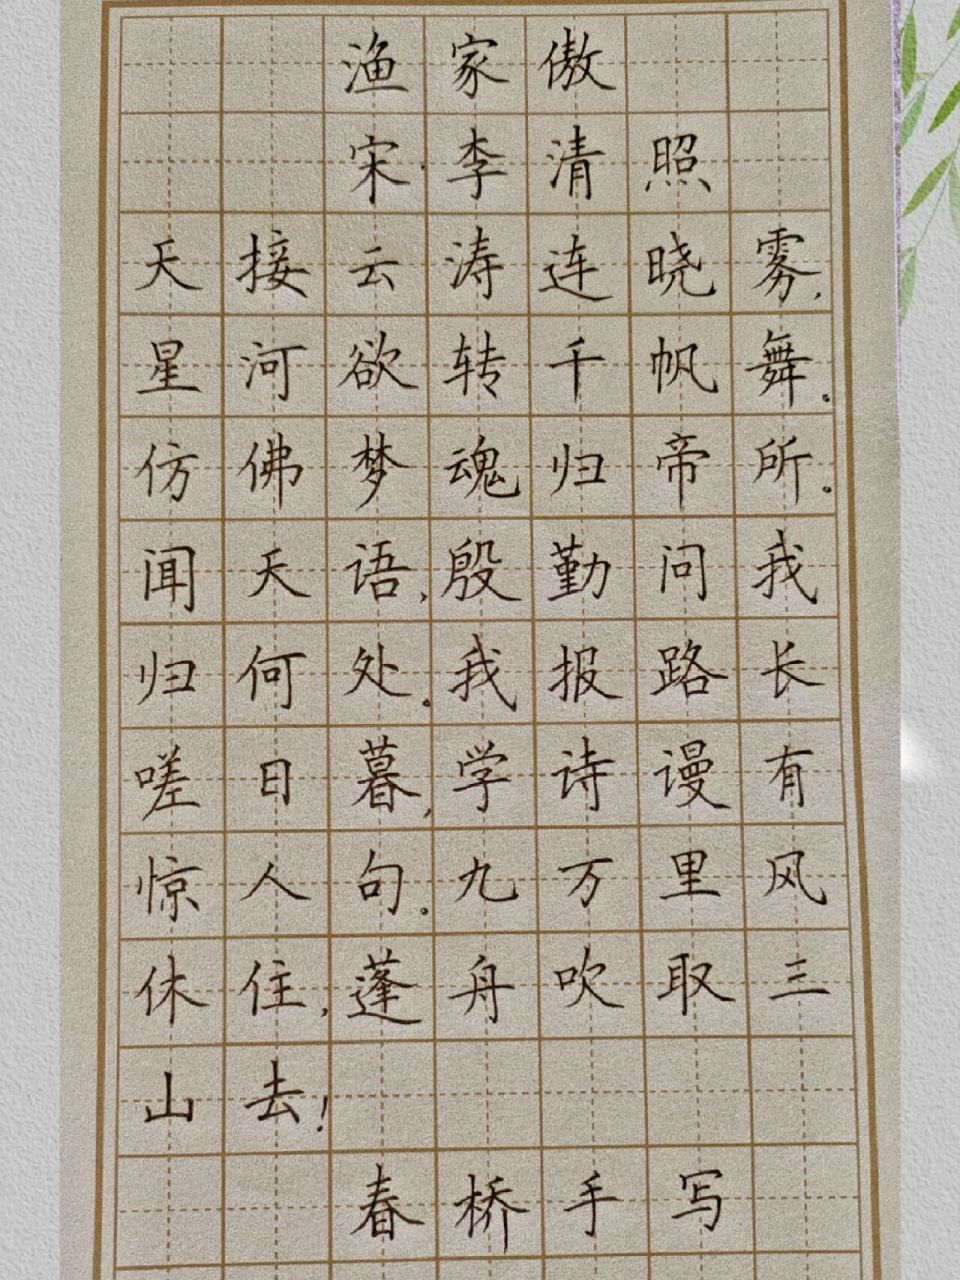 渔家傲
宋·李清照
天接云涛连晓雾,
星河欲转千帆舞。
仿佛梦魂归帝所。
闻天语,殷勤问我
归何处。我报路长
嗟日暮,学诗谩有
惊人句。九万里风
休住,蓬舟吹取三
山去!
春桥手写